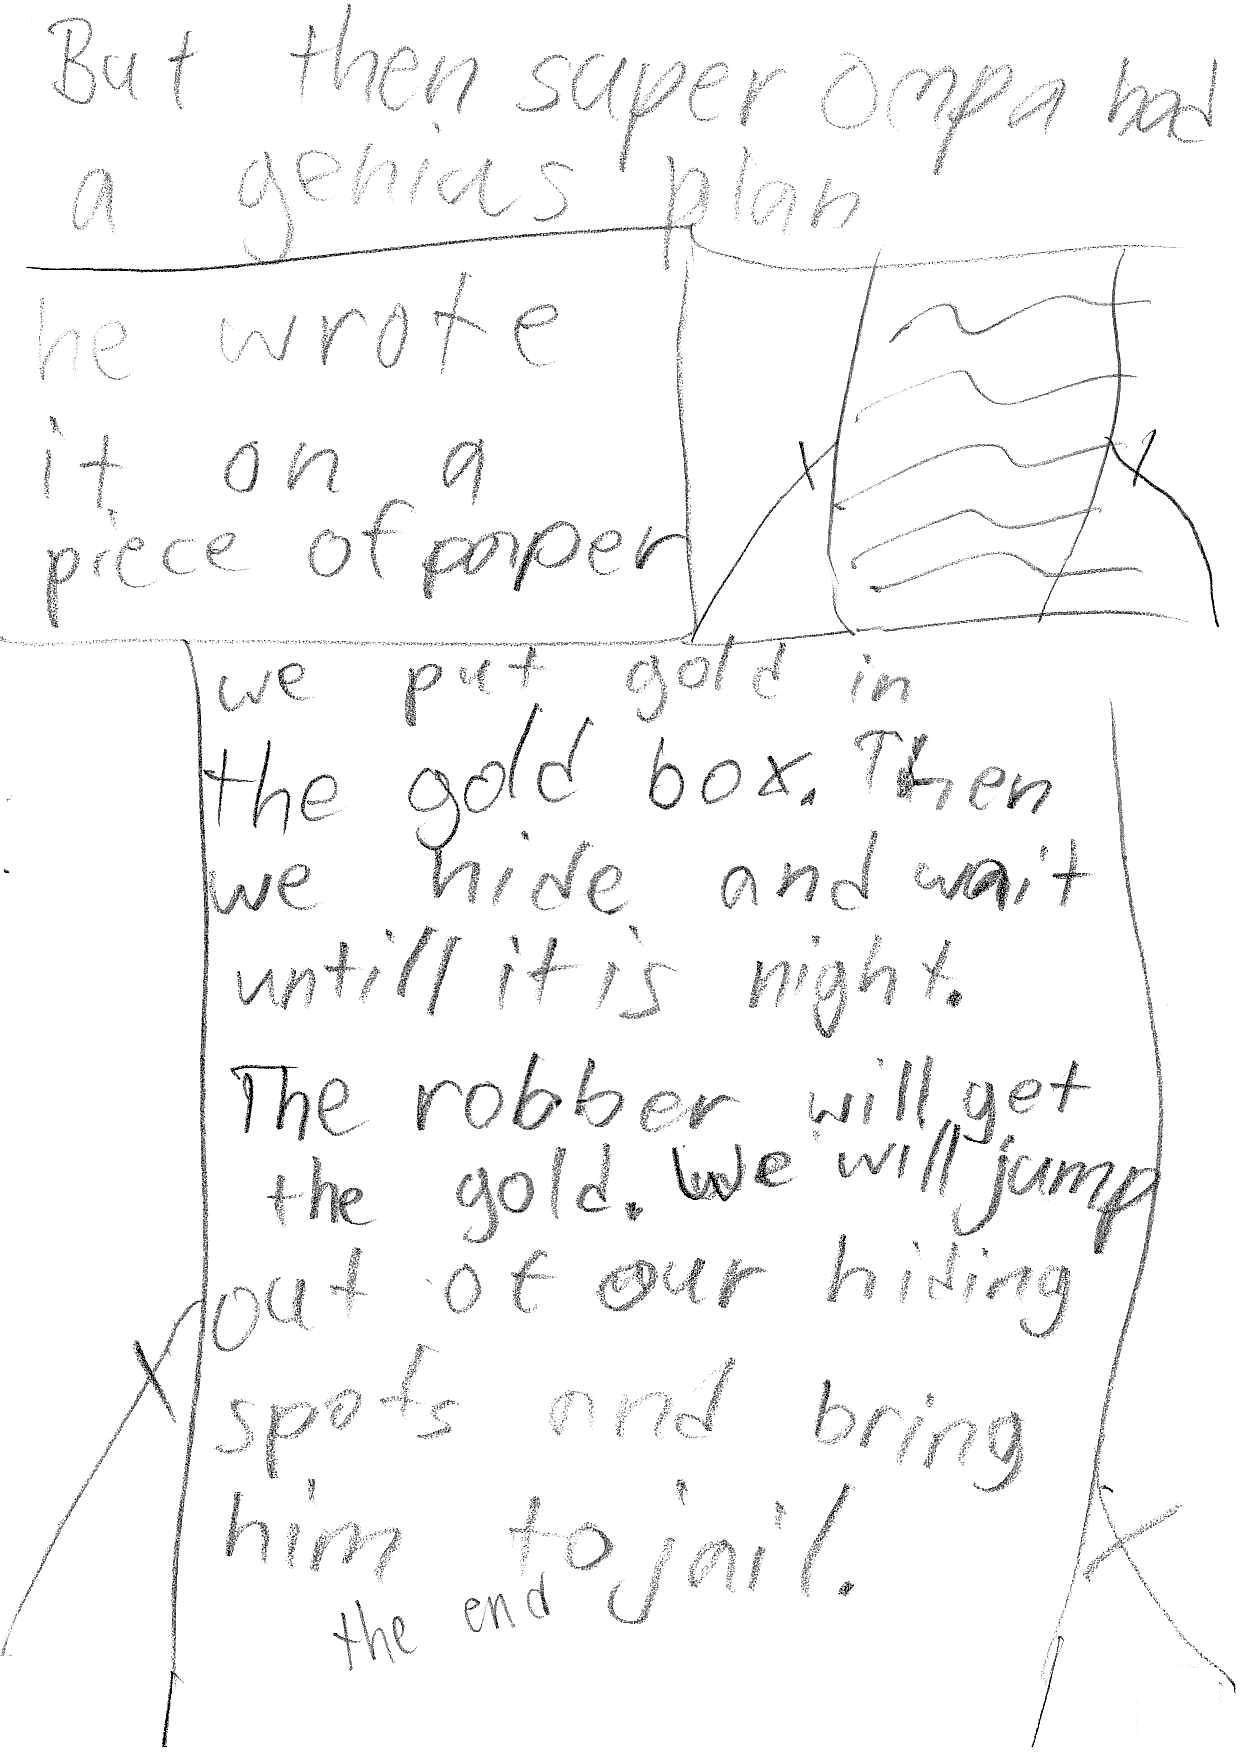 But then super ompa had
a genius plan
he wrote
it on a
piece of paper
we put gold in
the gold box. Then
we hide and wait
untill it is night.
The robber will get
the gold. We will jump
out of our hiding
spots and bring
him to jail.
the end